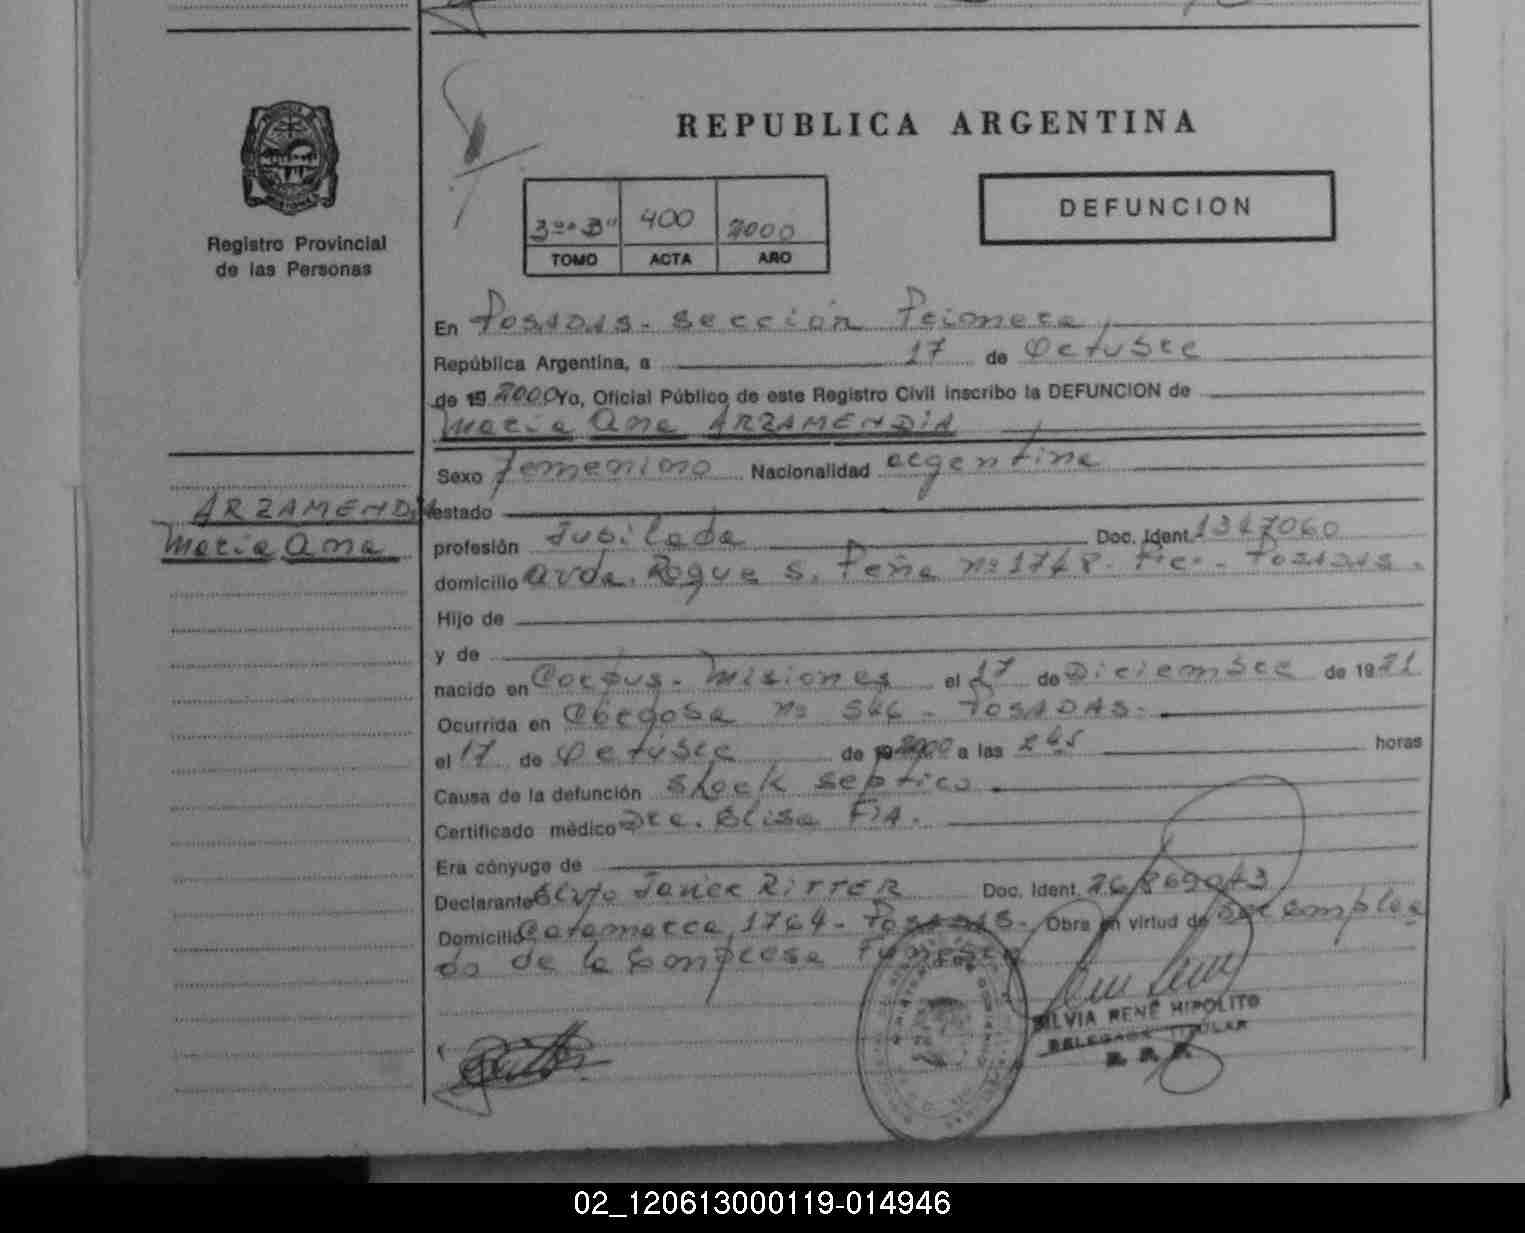 REPUBLICA ARGENTINA
DEFUNCION
Registro Provincial
de las Personas
3º "B" 400 2000
TOMO ACTA AÑO
En Posadas - Sección Primera,
República Argentina, a 17 de Octubre
de 19 2000 Yo, Oficial Público de este Registro Civil inscribo la DEFUNCION de
Maria Ana ARZAMENDIA
Sexo femenino Nacionalidad argentina
ARZAMENDIA
Maria Ana
estado
profesión Jubilada Doc. Ident. 1347060
domicilio avda. Roque S. Peña nº 1748 - Posadas.
Hijo de
y de
nacido en Corpus - Misiones el 17 de Diciembre de 1921
Ocurrida en nº 546 - POSADAS.
el 17 de Octubre de 19 2000 a las 2 45 horas
Causa de la defunción Shock septico
Certificado médico Dra. Elisa FIA.
Era cónyuge de
Declarante Javier RITTER Doc. Ident.
Domicilio Catamarca 1764 - Posadas - Obra en virtud de ser emplea
do de la Empresa Funebre
SILVIA RENÉ HIPOLITO
DELEGADA TITULAR
02_120613000119-014946